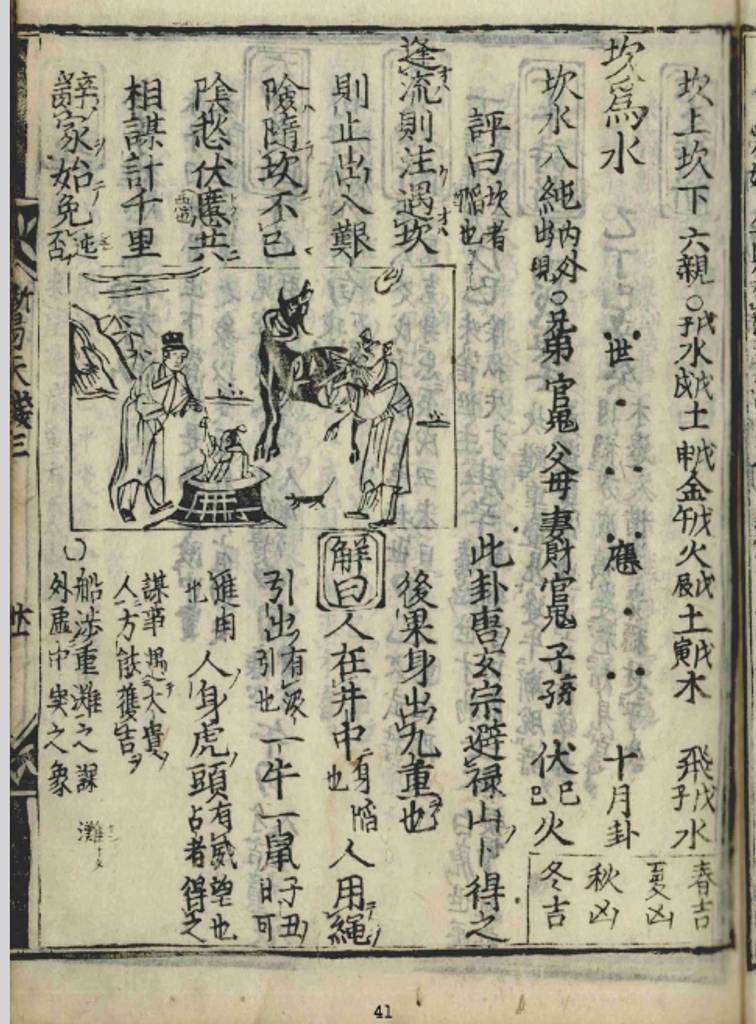 坎上坎下 六親○戊子水 戊戌土 戊申金 戊午火 戊辰土 戊寅木 飛戊子水
坎爲水 世 應 十月卦
坎水八純内外出現○兄弟 官鬼 父母 妻財 官鬼 子孫 伏己巳火
春吉
夏凶
秋凶
冬吉
評曰坎者陷也
逢流則注遇坎
則止出入艱
險隨坎不已
陰愁伏
相謀計千里
家始免
此卦唐玄宗避禄山卜得之
後果身出九重也
解曰人在井中身陷也 人用繩
引出有引也 一牛一鼠子丑日可
進用也 人身虎頭有威望也占者得之
謀事遇大貴人方能獲吉
船涉重灘之課
外虛中実之象
灘
新易天
41